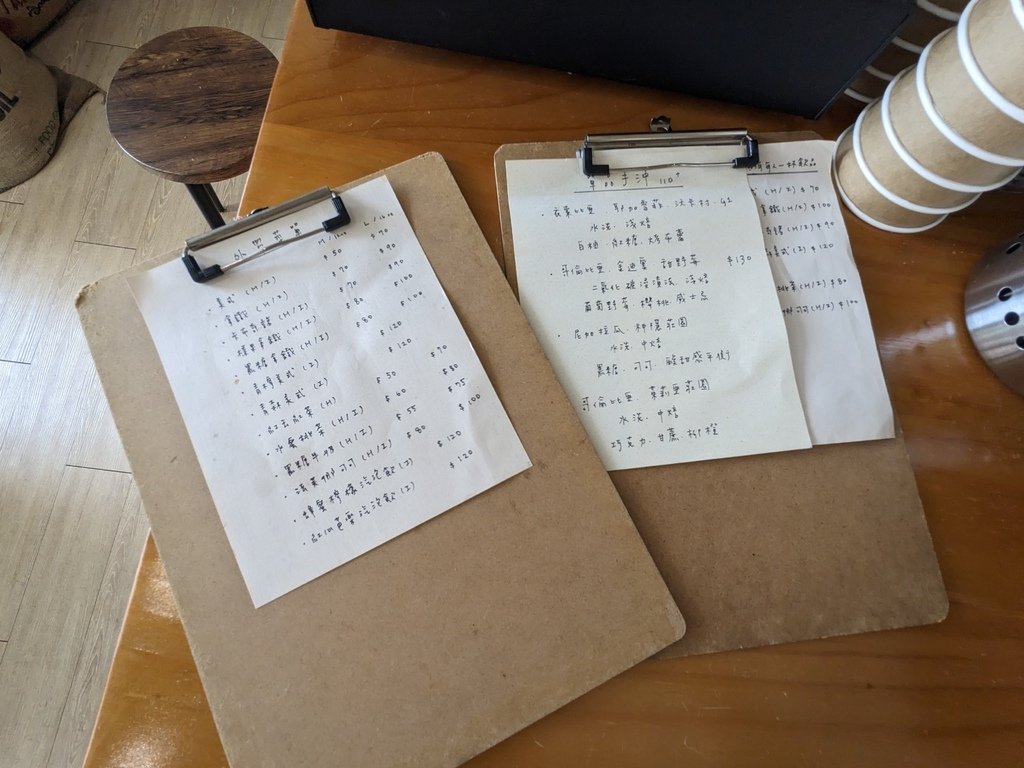 外帶菜單 M/12oz L/16oz
・美式 (H/I) $50 $70
・拿鐵 (H/I) $70 $90
・卡布奇諾 (H/I) $70 $90
・榛果拿鐵 (H/I) $80 $100
・黑糖拿鐵 (H/I) $80 $100
・青檸美式 (I) $120
・青森美式 (I) $120
・紅玉紅茶 (H) $50 $70
・水蜜桃茶 (H/I) $60 $80
・黑糖牛奶 (H/I) $55 $75
・法芙娜可可 (H/I) $80 $100
・蜂蜜檸檬汽泡飲 (I) $120
・紅心芭樂汽泡飲 (I) $120
單品手沖 110↑
・衣索比亞．耶加雪菲．沃卡村．G1
水洗．淺焙
白柚．紅糖．烤布蕾
・哥倫比亞．金迪奧 甜野莓 $130
二氧化碳浸漬法．淺焙
葡萄野莓櫻桃威士忌
・尼加拉瓜．檸檬莊園
水洗．中焙
黑糖．可可．酸甜感平衡
哥倫比亞 茉莉亞莊園
水洗．中焙
巧克力．甘蔗．柳橙
每人一杯飲品
(H/I) $70
拿鐵 (H/I) $100
奇諾 (H/I) $90
美式 (I) $120
桃茶 (H/I) $80
娜可可 (H/I) $100